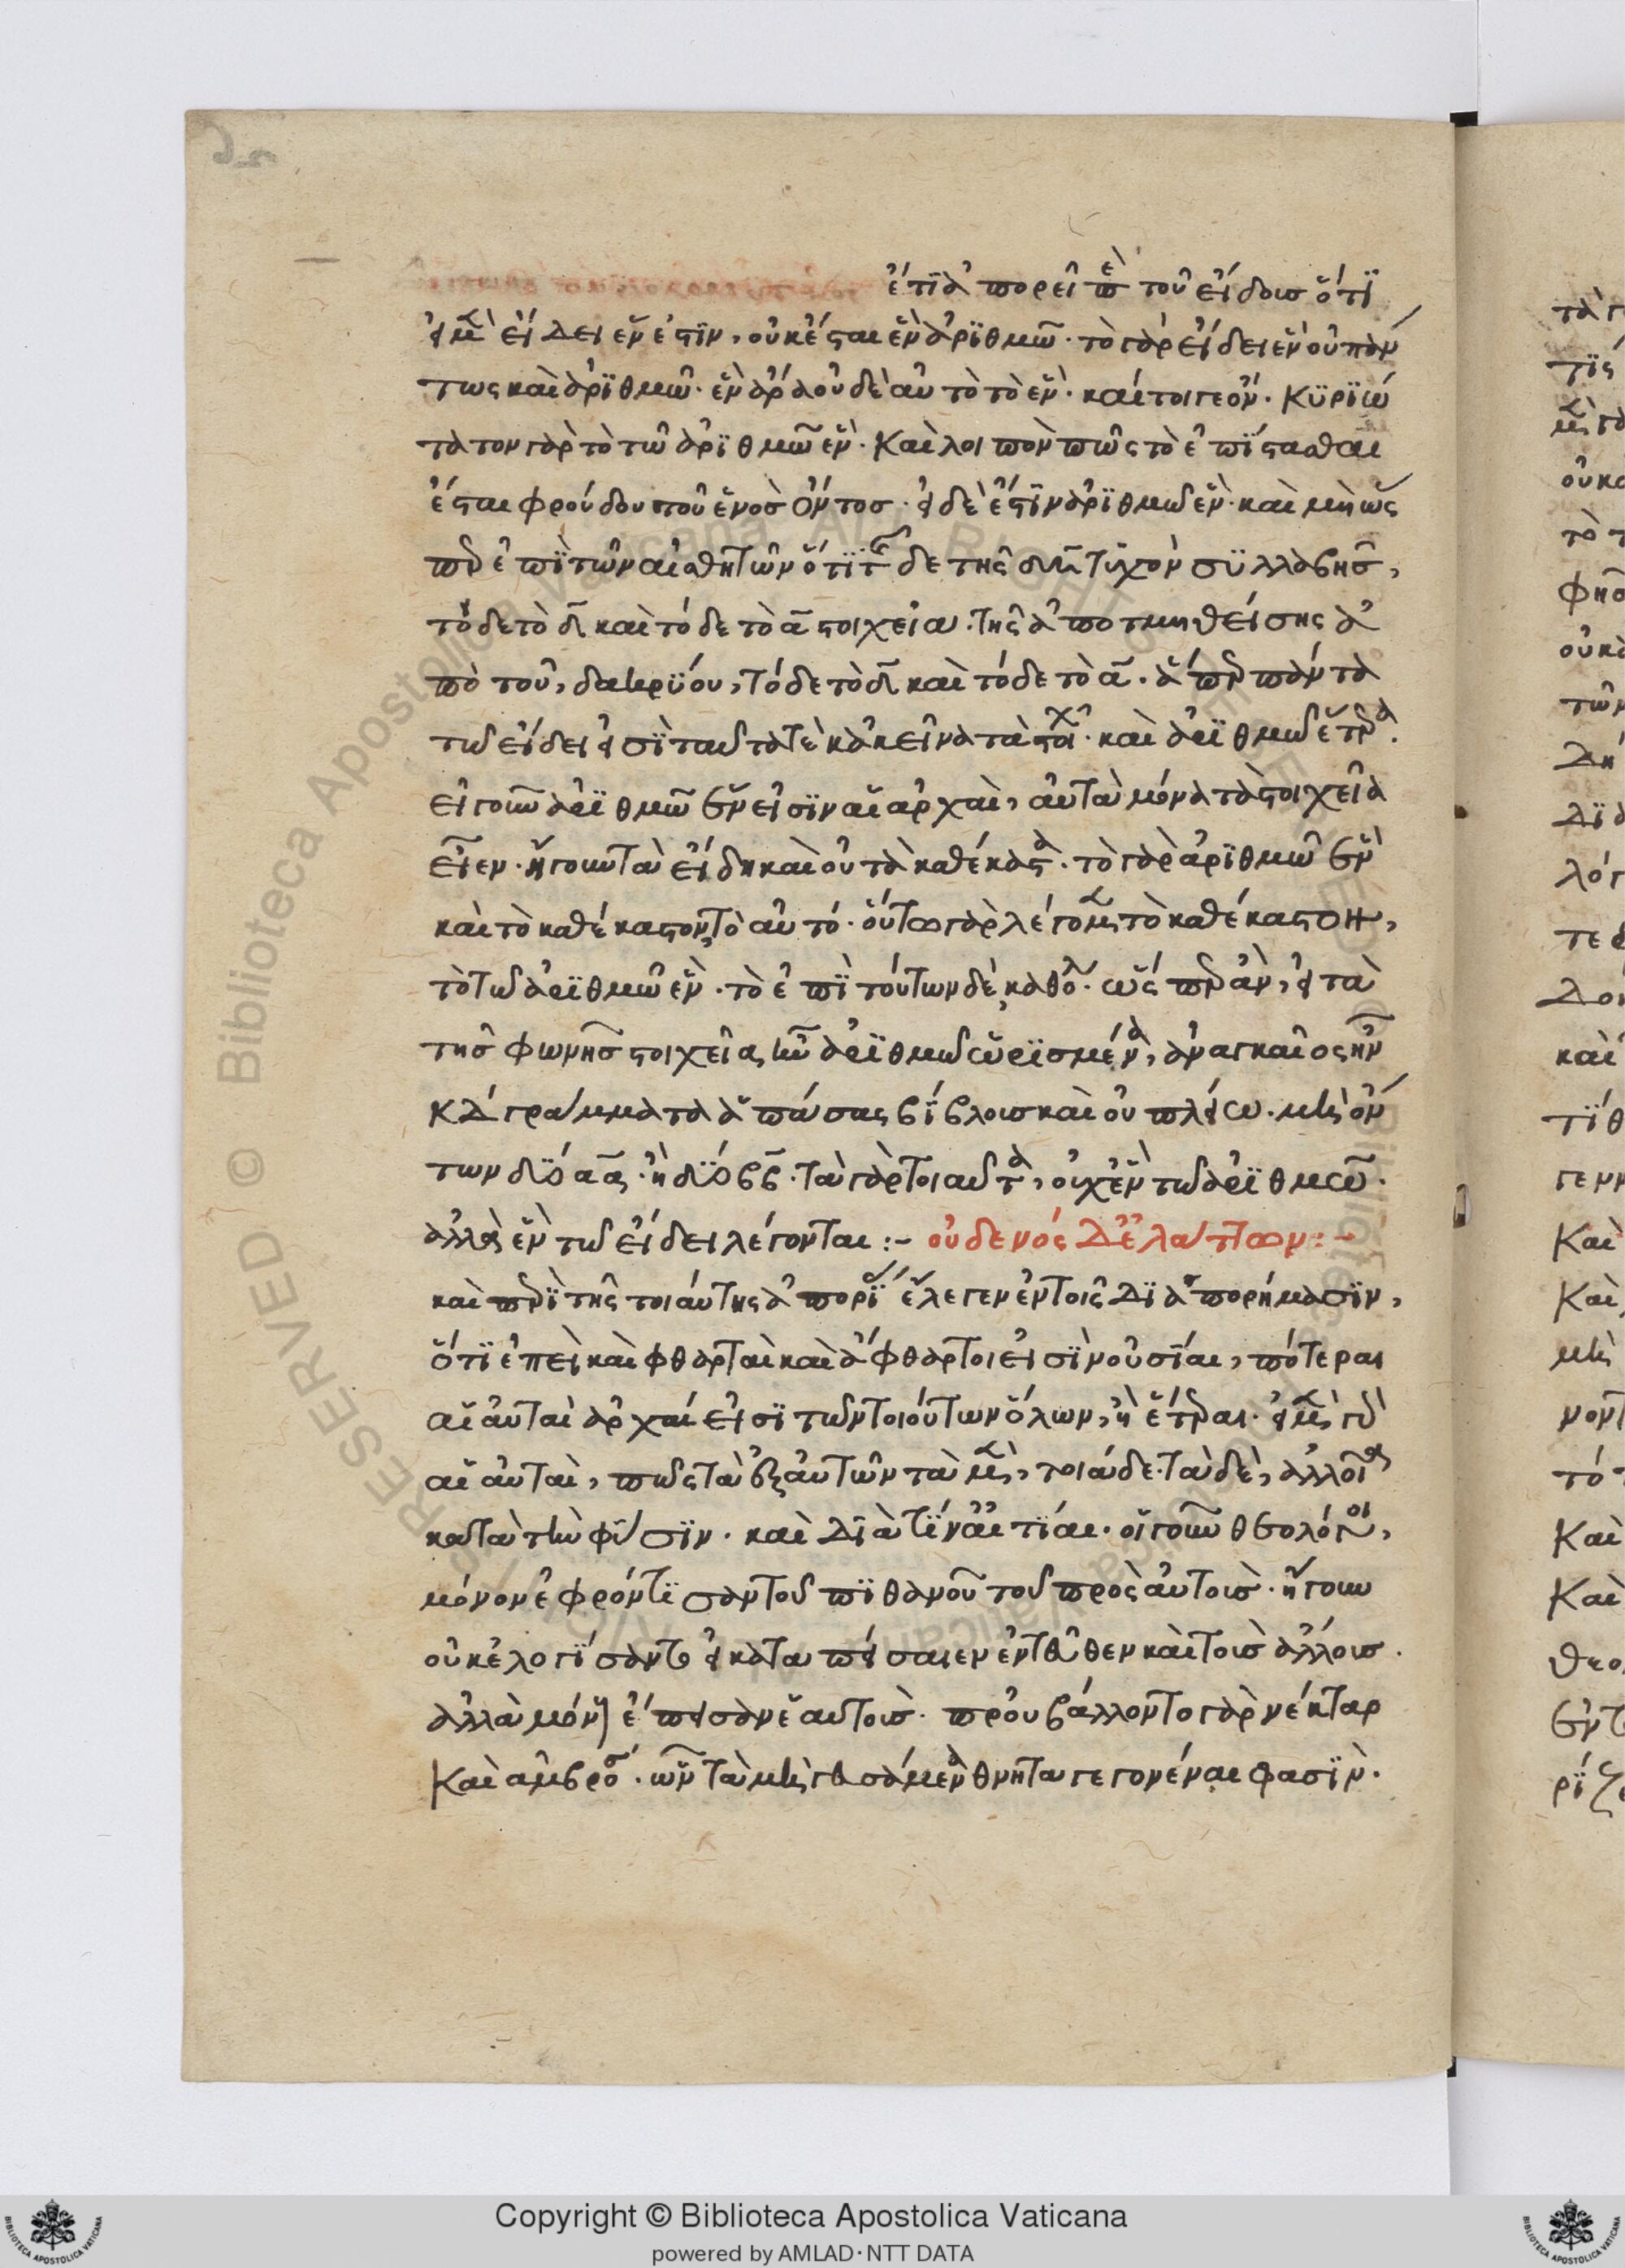 ἔτι ἀπορεῖ περὶ τοῦ εἴδους ὅτι
εἰ μὲν εἴδει ἕν ἐστιν, οὐκ ἔσται ἓν ἀριθμῷ· τὸ γὰρ εἴδει ἓν οὐ πάν
τως καὶ ἀριθμῷ· ἓν ἄρα οὐδὲ αὐτὸ τὸ ἕν· καίτοι γε ὄν· κυριώ
τατον γὰρ τὸ τῷ ἀριθμῷ ἕν· καὶ λοιπὸν πῶς τὸ ἐπίστασθαι
ἔσται φρούδου τοῦ ἑνὸς ὄντος· εἰ δὲ ἔστιν ἀριθμῷ ἕν· καὶ μὴ ὥς
περ ἐπὶ τῶν αἰσθητῶν ὅτι τῆσδε τῆς τυχὸν συλλαβῆς,
τόδε τὸ δ καὶ τόδε τὸ α στοιχεῖα· τῆς ἀποτμηθείσης ἀ
πὸ τοῦ, δακρύου, τόδε τὸ δ καὶ τόδε τὸ α· ἅπερ πάντα
τῷ εἴδει εἰσὶ ταῦτά τε κἀκεῖνα τὰ στοιχεῖα· καὶ ἀριθμῷ ἕτερα·
εἰ γοῦν ἀριθμῷ ἕν εἰσιν αἱ ἀρχαί, αὐτὰ μόνα τὰ στοιχεῖα
εἶεν· ἤγουν τὰ εἴδη καὶ οὐ τὰ καθέκαστα· τὸ γὰρ ἀριθμῷ ἓν
καὶ τὸ καθέκαστον, τὸ αὐτό· οὕτω γὰρ λέγομεν τὸ καθέκαστον,
τὸ τῷ ἀριθμῷ ἕν· τὸ ἐπὶ τούτων δὲ, καθόλου· ὥσπερ ἂν, εἰ τὰ
τῆς φωνῆς στοιχεῖα ἦν ἀριθμῷ ὡρισμένα, ἀναγκαῖος ἦν
κδ γράμματα ἁπάσαις βίβλοις καὶ οὐ πλείω· μὴ ὄν
των δύο αα, ἢ δύο ββ· τὰ γὰρ τοιαῦτα, οὐχ ἓν τῷ ἀριθμῷ·
ἀλλὰ ἓν τῷ εἴδει λέγονται :- οὐδενὸς δὲ ἐλάττων :-
καὶ περὶ τῆς τοιαύτης ἀπορίας ἔλεγεν ἐν τοῖς διαπορήμασιν,
ὅτι ἐπεὶ καὶ φθαρταὶ καὶ ἄφθαρτοι εἰσὶν οὐσίαι, πότεραι
αἱ αὐταὶ ἀρχαί εἰσι τῶν τοιούτων ὅλων, ἢ ἕτεραι· εἰ μὲν γὰρ
αἱ αὐταὶ, πῶς τὰ ἐξ αὐτῶν τὰ μὲν, τοιάδε· τὰ δὲ, ἀλλοῖα
κατὰ τὴν φύσιν· καὶ διὰ τίνα αἰτίαι· οἱ γοῦν θεολόγοι,
μόνον ἐφρόντισαν τοῦ πιθανοῦ τοῦ πρὸς αὐτοὺς· ἤγουν
οὐκ ἐλογίσαντο εἰ καταπείσαιεν ἐντεῦθεν καὶ τοὺς ἄλλους·
ἀλλὰ μόνον ἔπεισαν ἑαυτούς· προυβάλλοντο γὰρ νέκταρ
καὶ ἀμβροσίαν· ὧν τὰ μὴ γευσάμενα θνητὰ γεγονέναι φασίν·